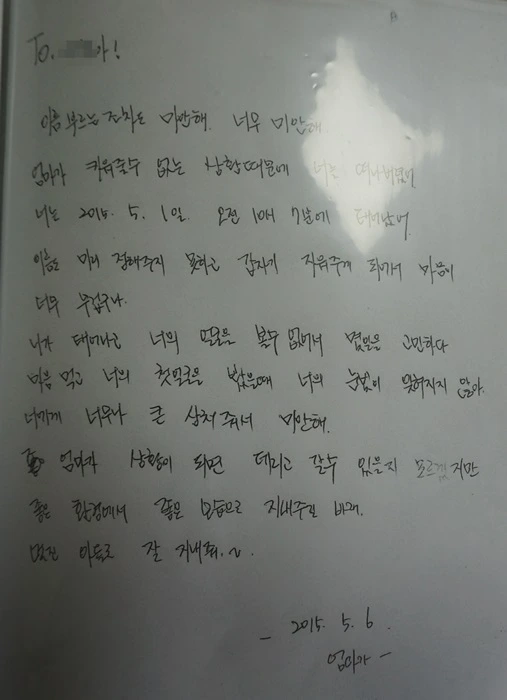 To. 아!
이름 부르는 조차도 미안해. 너무 미안해
엄마가 키워줄수 없는 상황 때문에 너를 떠나보냈어
너는 2015. 5. 1일. 오전 10시 7분에 태어났어
이름도 미리 정해주지 못하고 갑자기 지워주게 되어서 마음이
너무 무겁구나.
니가 태어나고 너의 얼굴을 볼수 없어서 몇일을 고민하다
마음 먹고 너의 첫얼굴을 봤을때 너의 눈빛이 잊혀지지 않아.
너에게 너무나 큰 상처 줘서 미안해.
엄마가 상황이 되면 데리고 갈수 있을지 모르겠지만
좋은 환경에서 좋은 모습으로 지내주길 바래.
멋진 아들로 잘 지내줘.~.
- 2015. 5. 6
엄마가 -